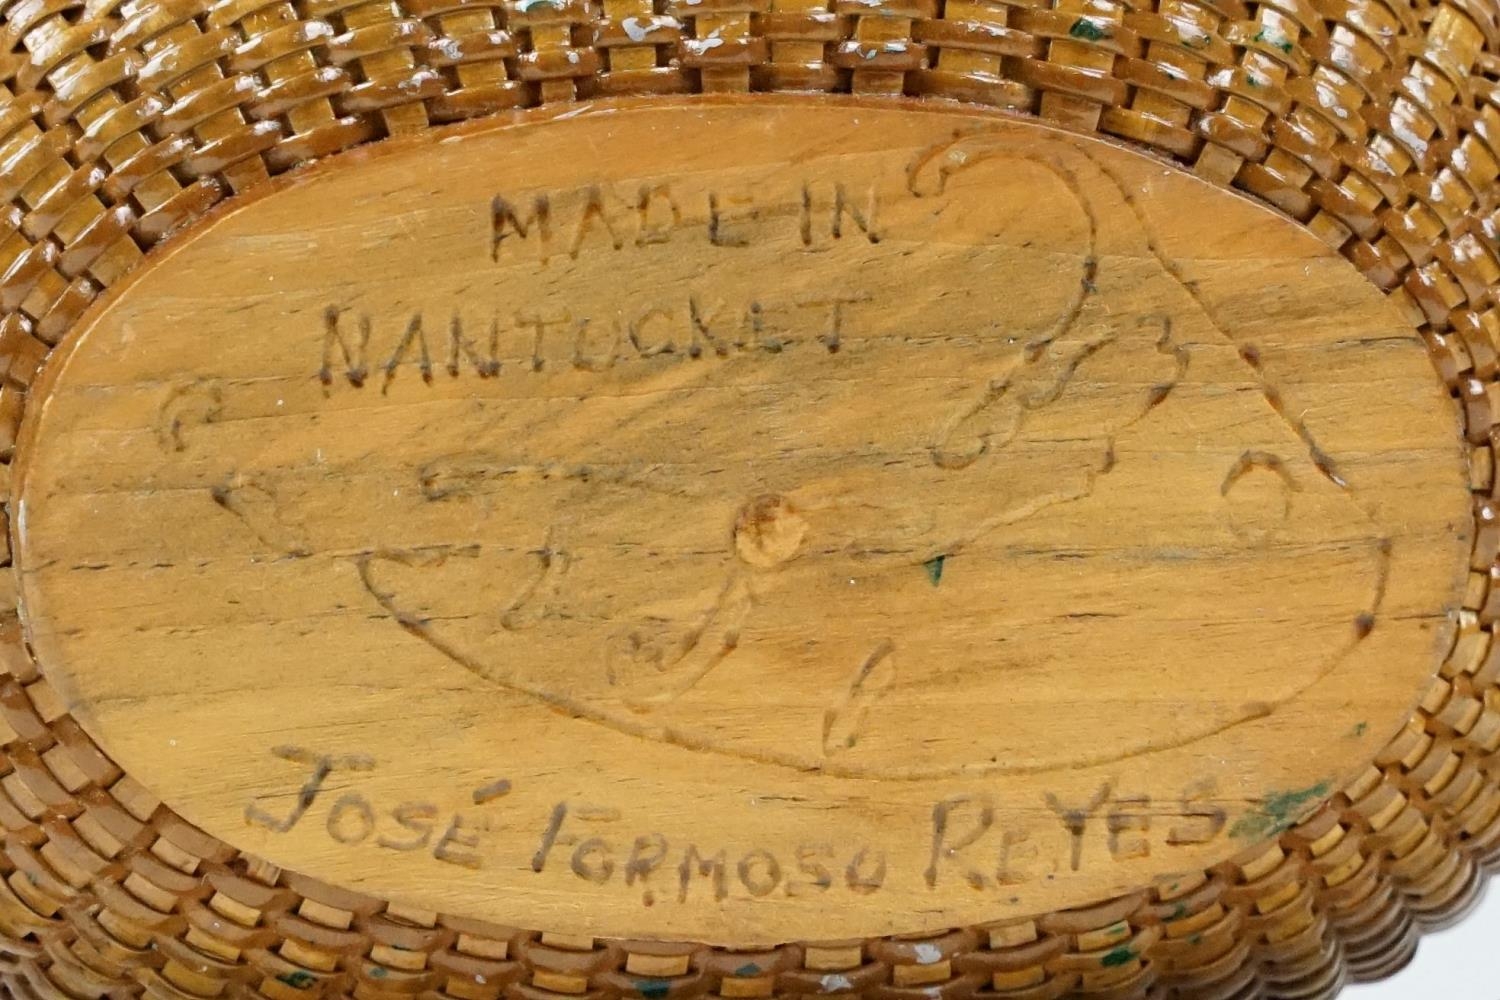 MADE IN
NANTUCKET
JOSÉ FORMOSO REYES